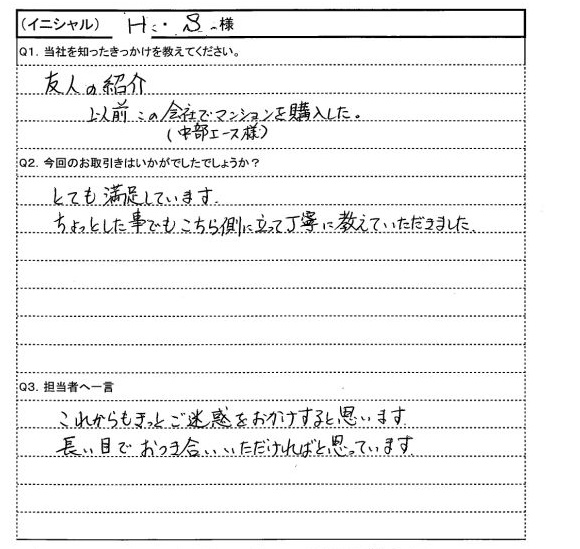 （イニシャル） H・S 様
Q1．当社を知ったきっかけを教えてください。
友人の紹介
以前この会社でマンションを購入した。
(中部エース様)
Q2．今回のお取引きはいかがでしたでしょうか？
とても満足しています.
ちょっとした事でもこちら側に立って丁寧に教えていただきました.
Q3．担当者へ一言
これからもきっとご迷惑をおかけすると思います
長い目でおつき合いいただければと思っています